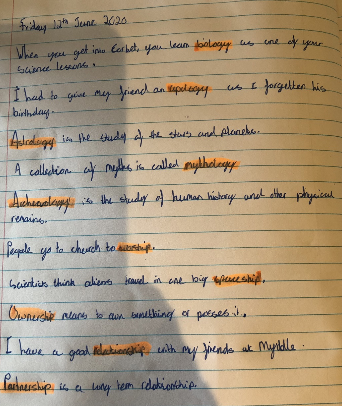 Friday 12th June 2020
When you get into Corbet, you learn biology as one of your
science lessons.
I had to give my friend an apology as I forgotten his
birthday.
Astrology is the study of the stars and planets.
A collection of myths is called mythology
Archaeology is the study of human history and other physical
remains.
People go to church to worship.
Scientists think aliens travel in one big spaceship.
Ownership means to own something or posses it.
I have a good relationship with my friends at Myddle.
Partnership is a long term relationship.